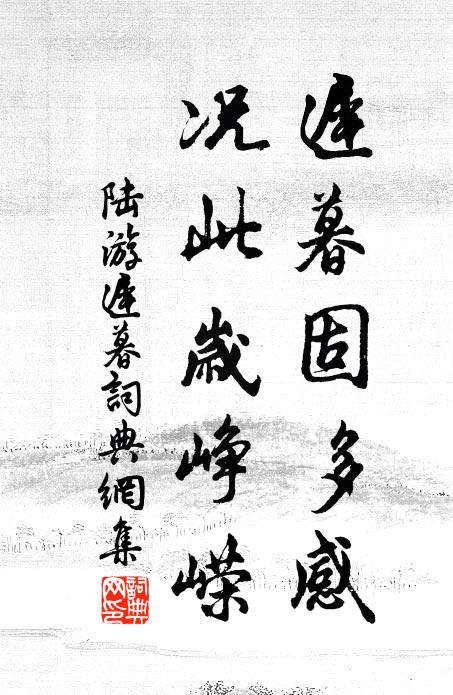 遲暮固多感
况此歲崢嶸
陸游遲暮詞典網集
詞典
网印